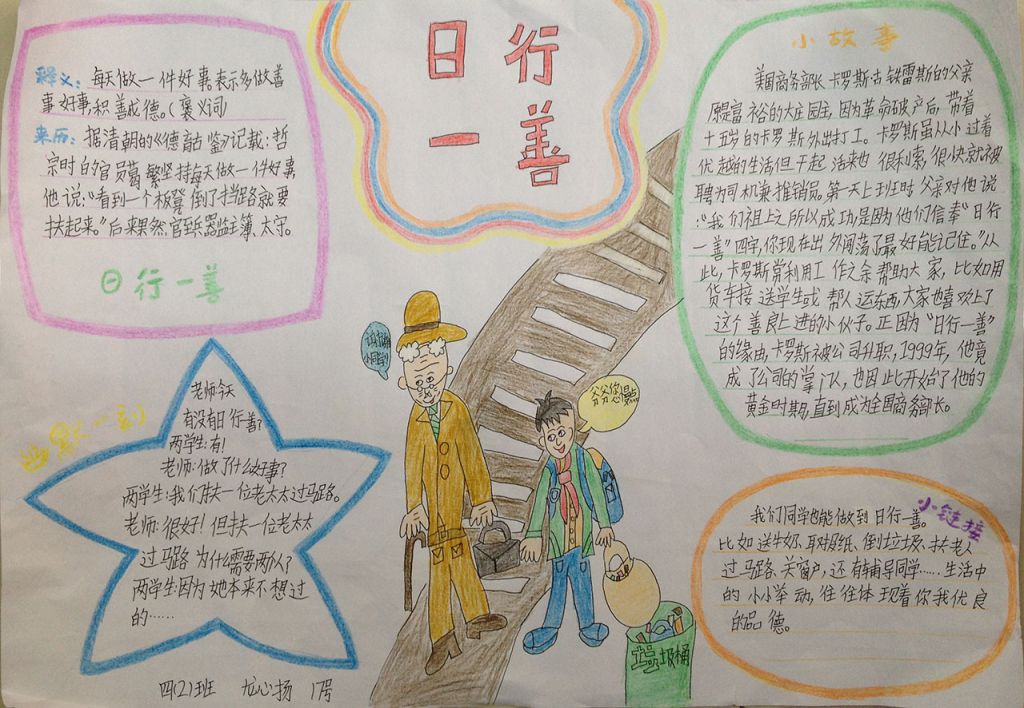 日行
一善
释义:每天做一件好事,表示多做善
事好事,积善成德。(褒义词)
来历:据清朝的《德育古鉴》记载:哲
宗时的官员葛繁坚持每天做一件好事
他说:“看到一个板凳倒了挡路就要
扶起来。”后来果然官至兵器监主簿、太守。
日行一善
小故事
美国商务部长卡罗斯·古铁雷斯的父亲
原是富裕的大庄园主,因为革命破产后,带着
十五岁的卡罗斯外出打工。卡罗斯虽从小过着
优越的生活但干起活来也很利索,很快就被
聘为司机兼推销员。第一天上班时父亲对他说
:“我们祖上之所以成功是因为他们信奉“日行
一善”四字,你现在出外闯荡了最好能记住。”从
此,卡罗斯常利用工作之余帮助大家,比如用
货车接送学生或帮人运东西,大家也喜欢上了
这个善良上进的小伙子。正因为“日行一善”
的缘由,卡罗斯被公司升职,1999年,他竟
成了公司的掌门人,也因此开始了他的
黄金时期,直到成为全国商务部长。
幽默一刻
老师:今天
有没有日行一善?
两学生:有!
老师:做了什么好事?
两学生:我们扶一位老太太过马路。
老师:很好!但扶一位老太太
过马路为什么需要两人?
两学生:因为她本来不想过
的……
小同学!
爷爷您慢点
垃圾桶
小链接
我们同学也能做到日行一善。
比如送牛奶、取报纸、倒垃圾、扶老人
过马路、关窗户,还有辅导同学……生活中
的小小举动,往往体现着你我优良
的品德。
四(2)班 尤心扬 17号